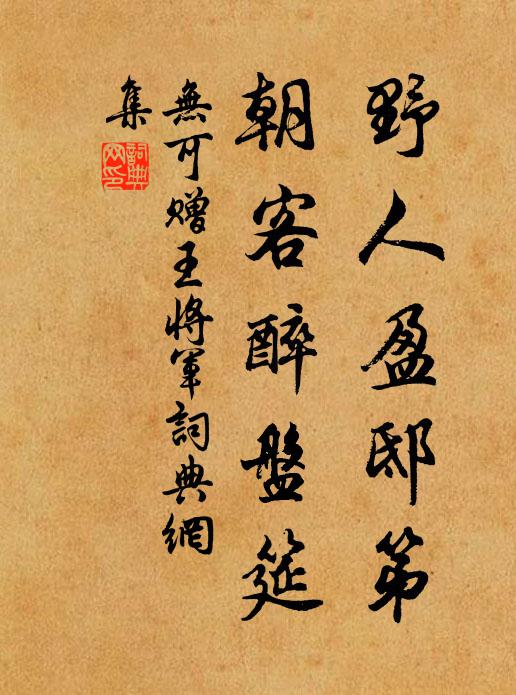 野人盈邸第
朝客醉盤筵
無可贈王將軍詞典網
集
詞典網印